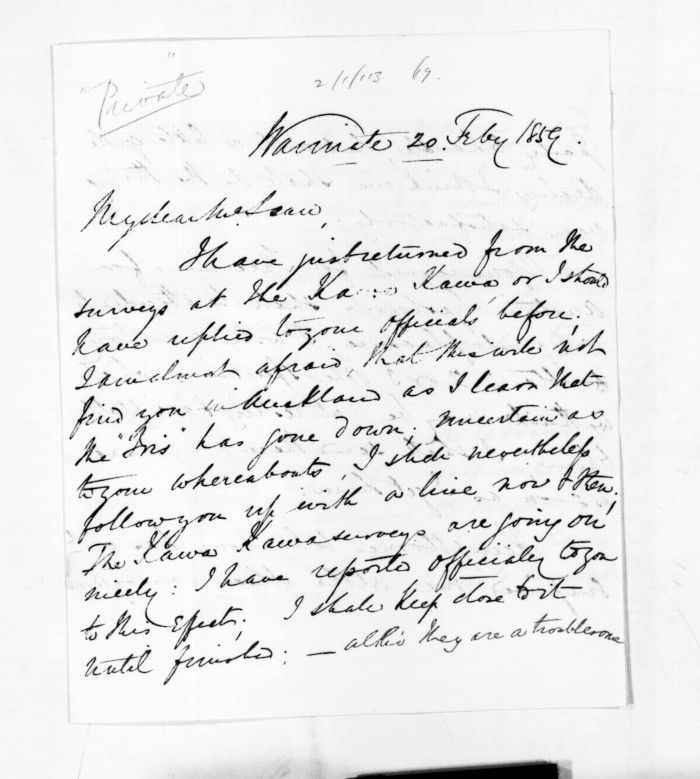 "Private"
2/1/113 69.
Waimate 20. Feby 1859.
My dear McLean,
I have just returned from the
surveys at the Kawa Kawa, or I should
have replied to your officials before;
I am almost afraid, that this will not
find you in Auckland as I learn that
the "Iris" has gone down; uncertain as
to your whereabouts, I shall nevertheless
follow you up with a line now & then;
The Kawa Kawa surveys are going on
nicely: I have reported officially to you
to this effect; I shall keep close to it
until finished; — altho' they are a troublesome